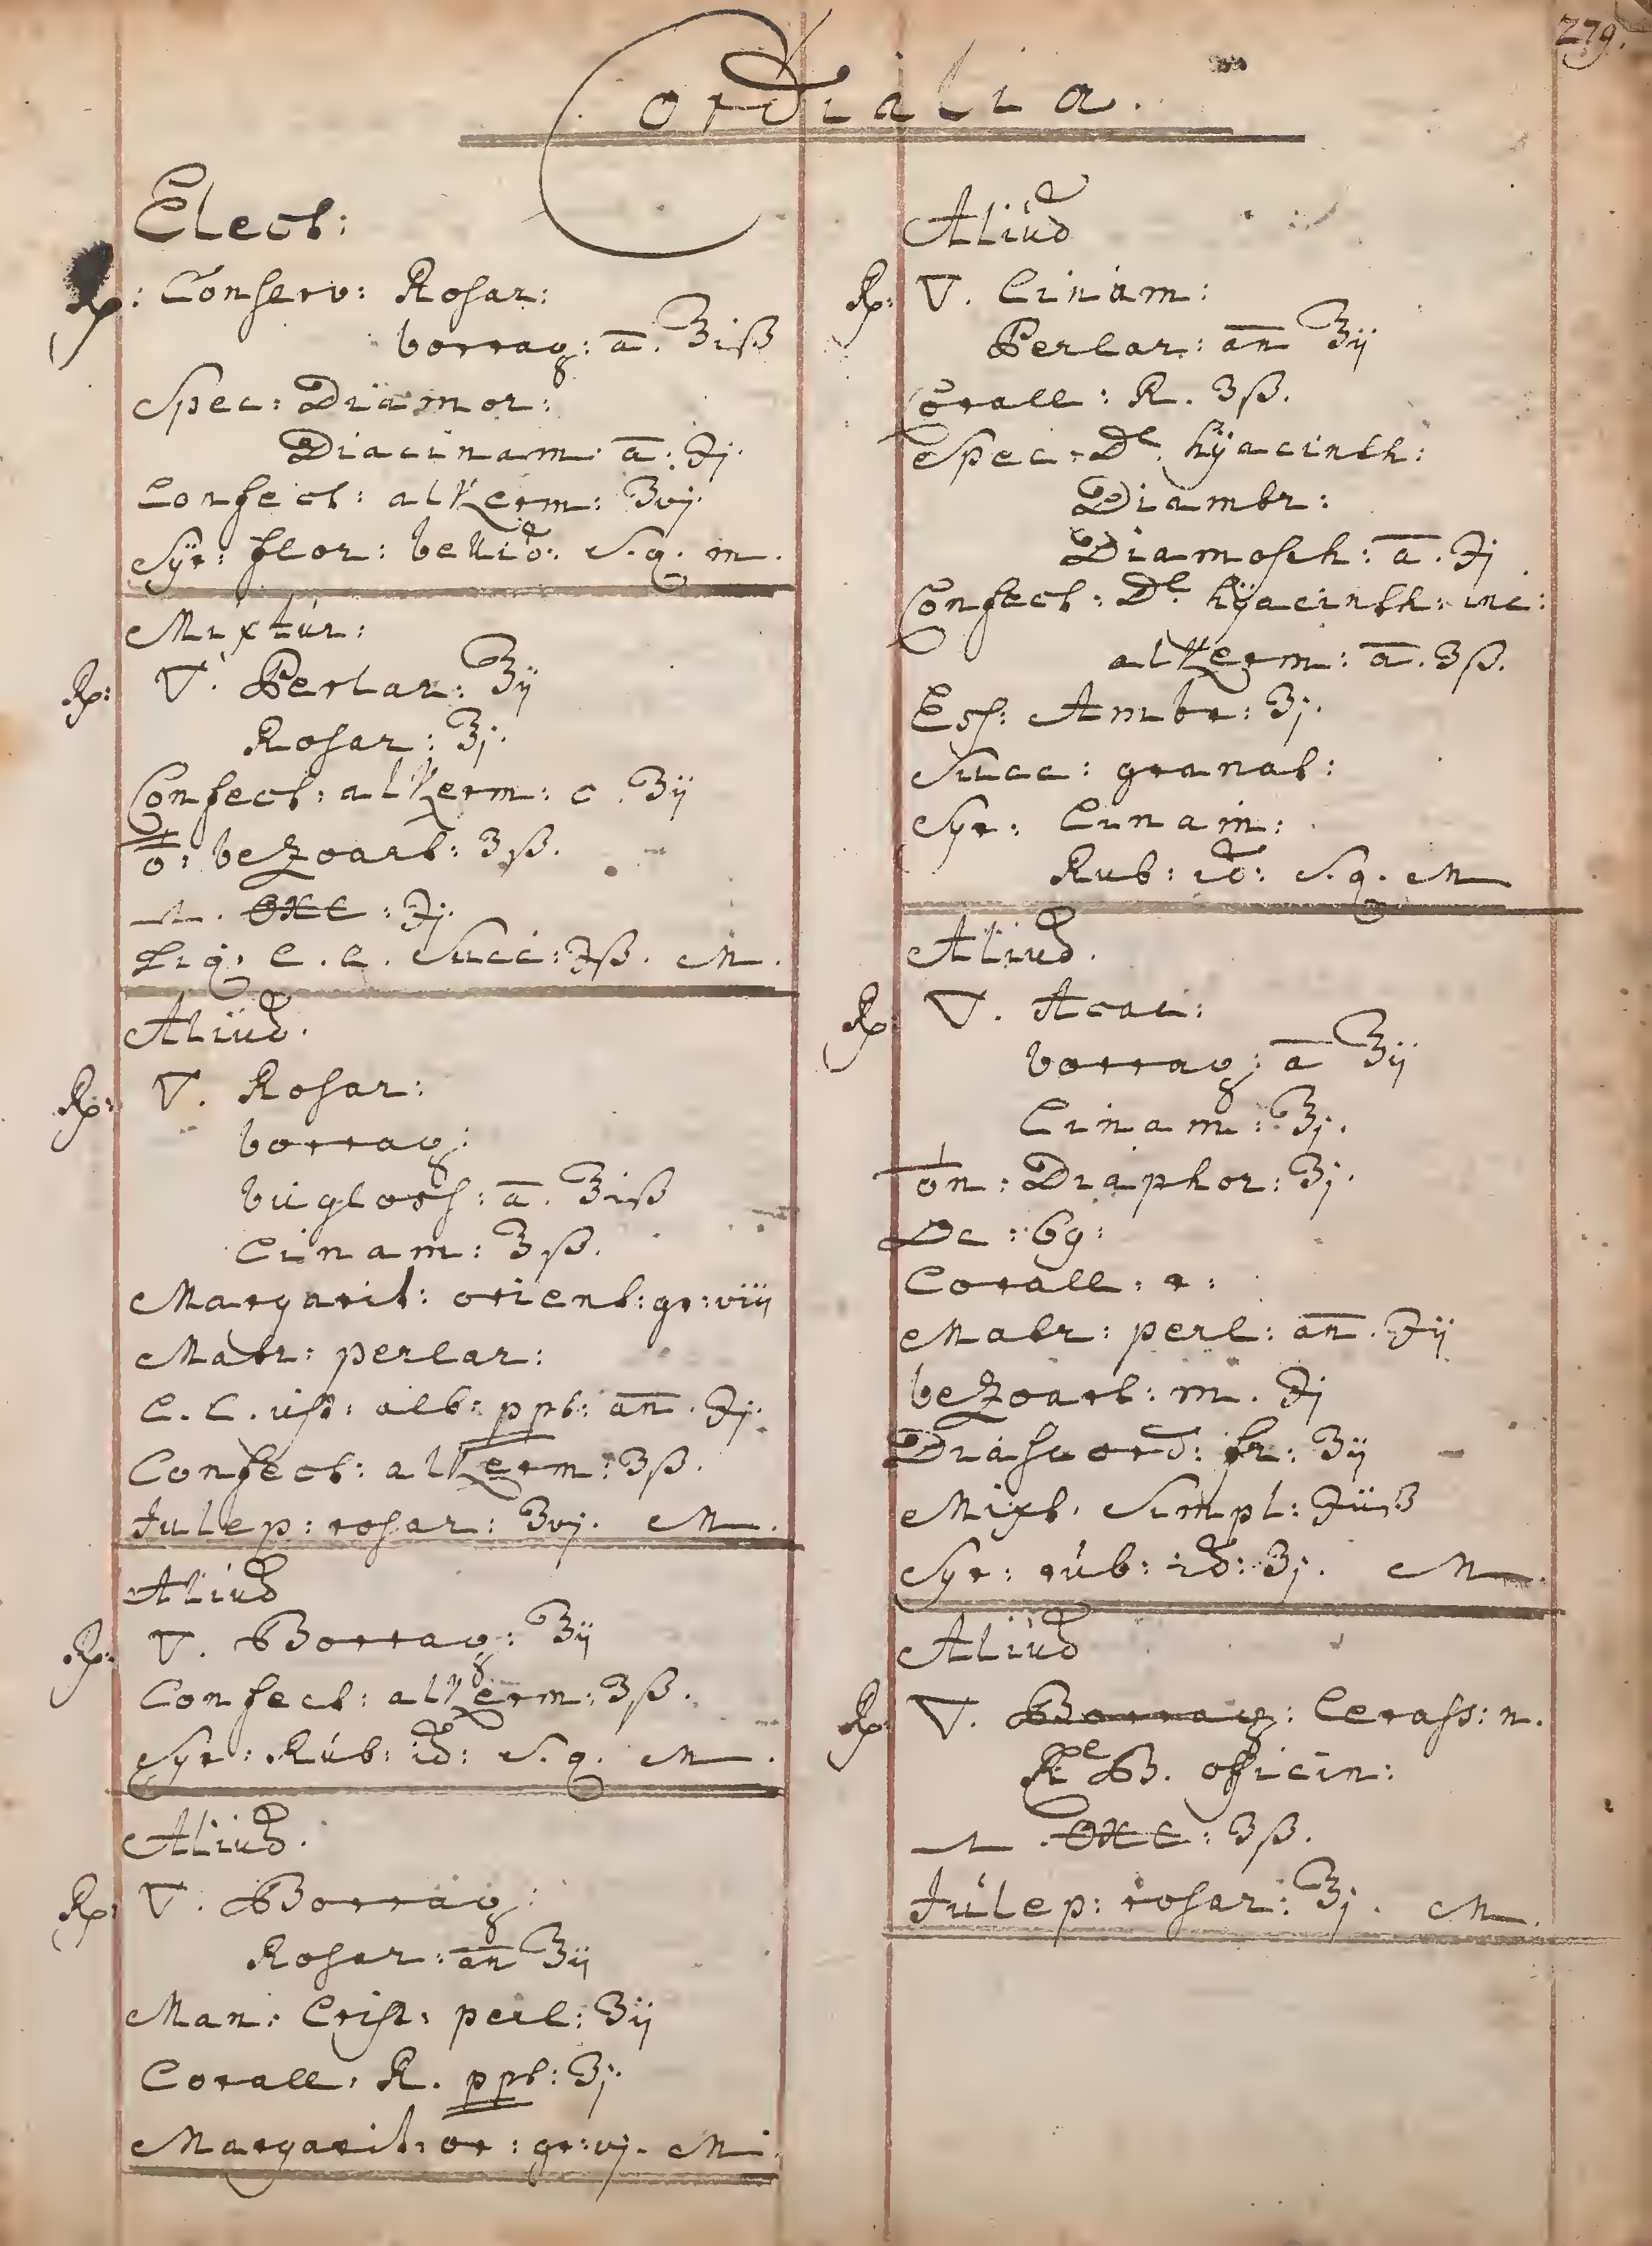 279.
Cordialia.
Elect:
Rp: Conserv: Rosar:
borrag: a. ℥iß
Spec: Diamor:
Diacinam: a: ℈j.
Confect: alKerm: ʒvj.
Syr: flor: bellid: S. q. m.
Mixtur:
Rp: ▽. Perlar: ℥ij
Rosar: ℥j.
Confect: alKerm: c. ʒij
bezoart: ʒß.
: ℈j.
Liq. C. C. Succ: ℈ß. M.
Aliud.
Rp: ▽. Rosar:
borrag:
bugloss: a. ℥iß
Cinam: ℥ß.
Margarit: orient: gr: viij
Matr: perlar:
C. C. ust: alb: ppt: an. ℈j.
Confect: alKerm: ʒß.
Julep: rosar: ʒvj. M.
Aliud
Rp: ▽. Borrag: ℥ij
Confect: alKerm: ʒß.
Syr: Rub: id: S. q. M.
Aliud.
Rp: ▽. Borrag:
Rosar: an ℥ij
Man: Crist: perl: ʒij
Corall: R. ppt: ʒj.
Margarit: or: gr: vj. M.
Aliud
Rp: ▽. Cinam:
Perlar: an ℥ij
Corall: R. ʒß.
Spec: De hyacinth:
Diambr:
Diamosch: a. ℈j
Confect: De hyacinth: inc:
alKerm: a. ʒß.
Ess: Ambr: ʒj.
Succ: granat:
Syr: Cinam:
Rub: id: S. q. M
Aliud.
Rp: ▽. Acac:
borrag: a ℥ij
Cinam: ℥j.
Diaphor: ʒj.
Corall: r:
Matr: perl: an. ℈ij
bezoart: m. ℈j
Diascord: fr: ʒij
Mixt. Simpl: ℈iiß
Syr: rub: id: ℥j. M.
Aliud
Rp: ▽. Cerass: n.
officin:
: ʒß.
Julep: rosar: ℥j. M.